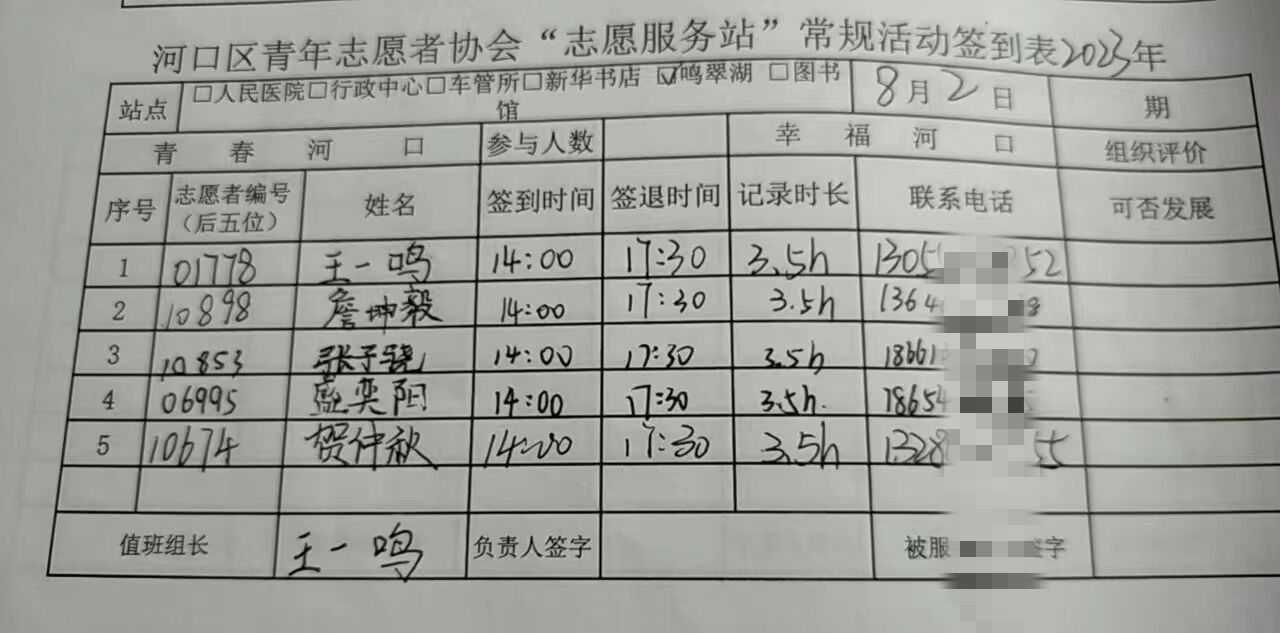 河口区青年志愿者协会“志愿服务站”常规活动签到表2023年
站点 □人民医院□行政中心□车管所□新华书店 ☑鸣翠湖 □图书馆 8月2日 期
青春河口 参与人数 幸福河口 组织评价
序号 志愿者编号（后五位） 姓名 签到时间 签退时间 记录时长 联系电话 可否发展
1 01778 王一鸣 14:00 17:30 3.5h 1305 52
2 10898 詹坤毅 14:00 17:30 3.5h 1364 8
3 10853 张子骁 14:00 17:30 3.5h 1866
4 06995 盛奕阳 14:00 17:30 3.5h. 18654
5 10674 贺仲秋 14:00 17:30 3.5h 1328 55
值班组长 王一鸣 负责人签字 被服 签字